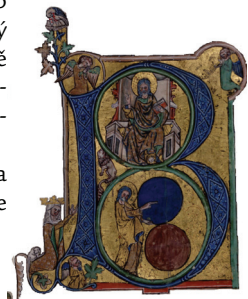 ý
ě
-
-
a
e
B